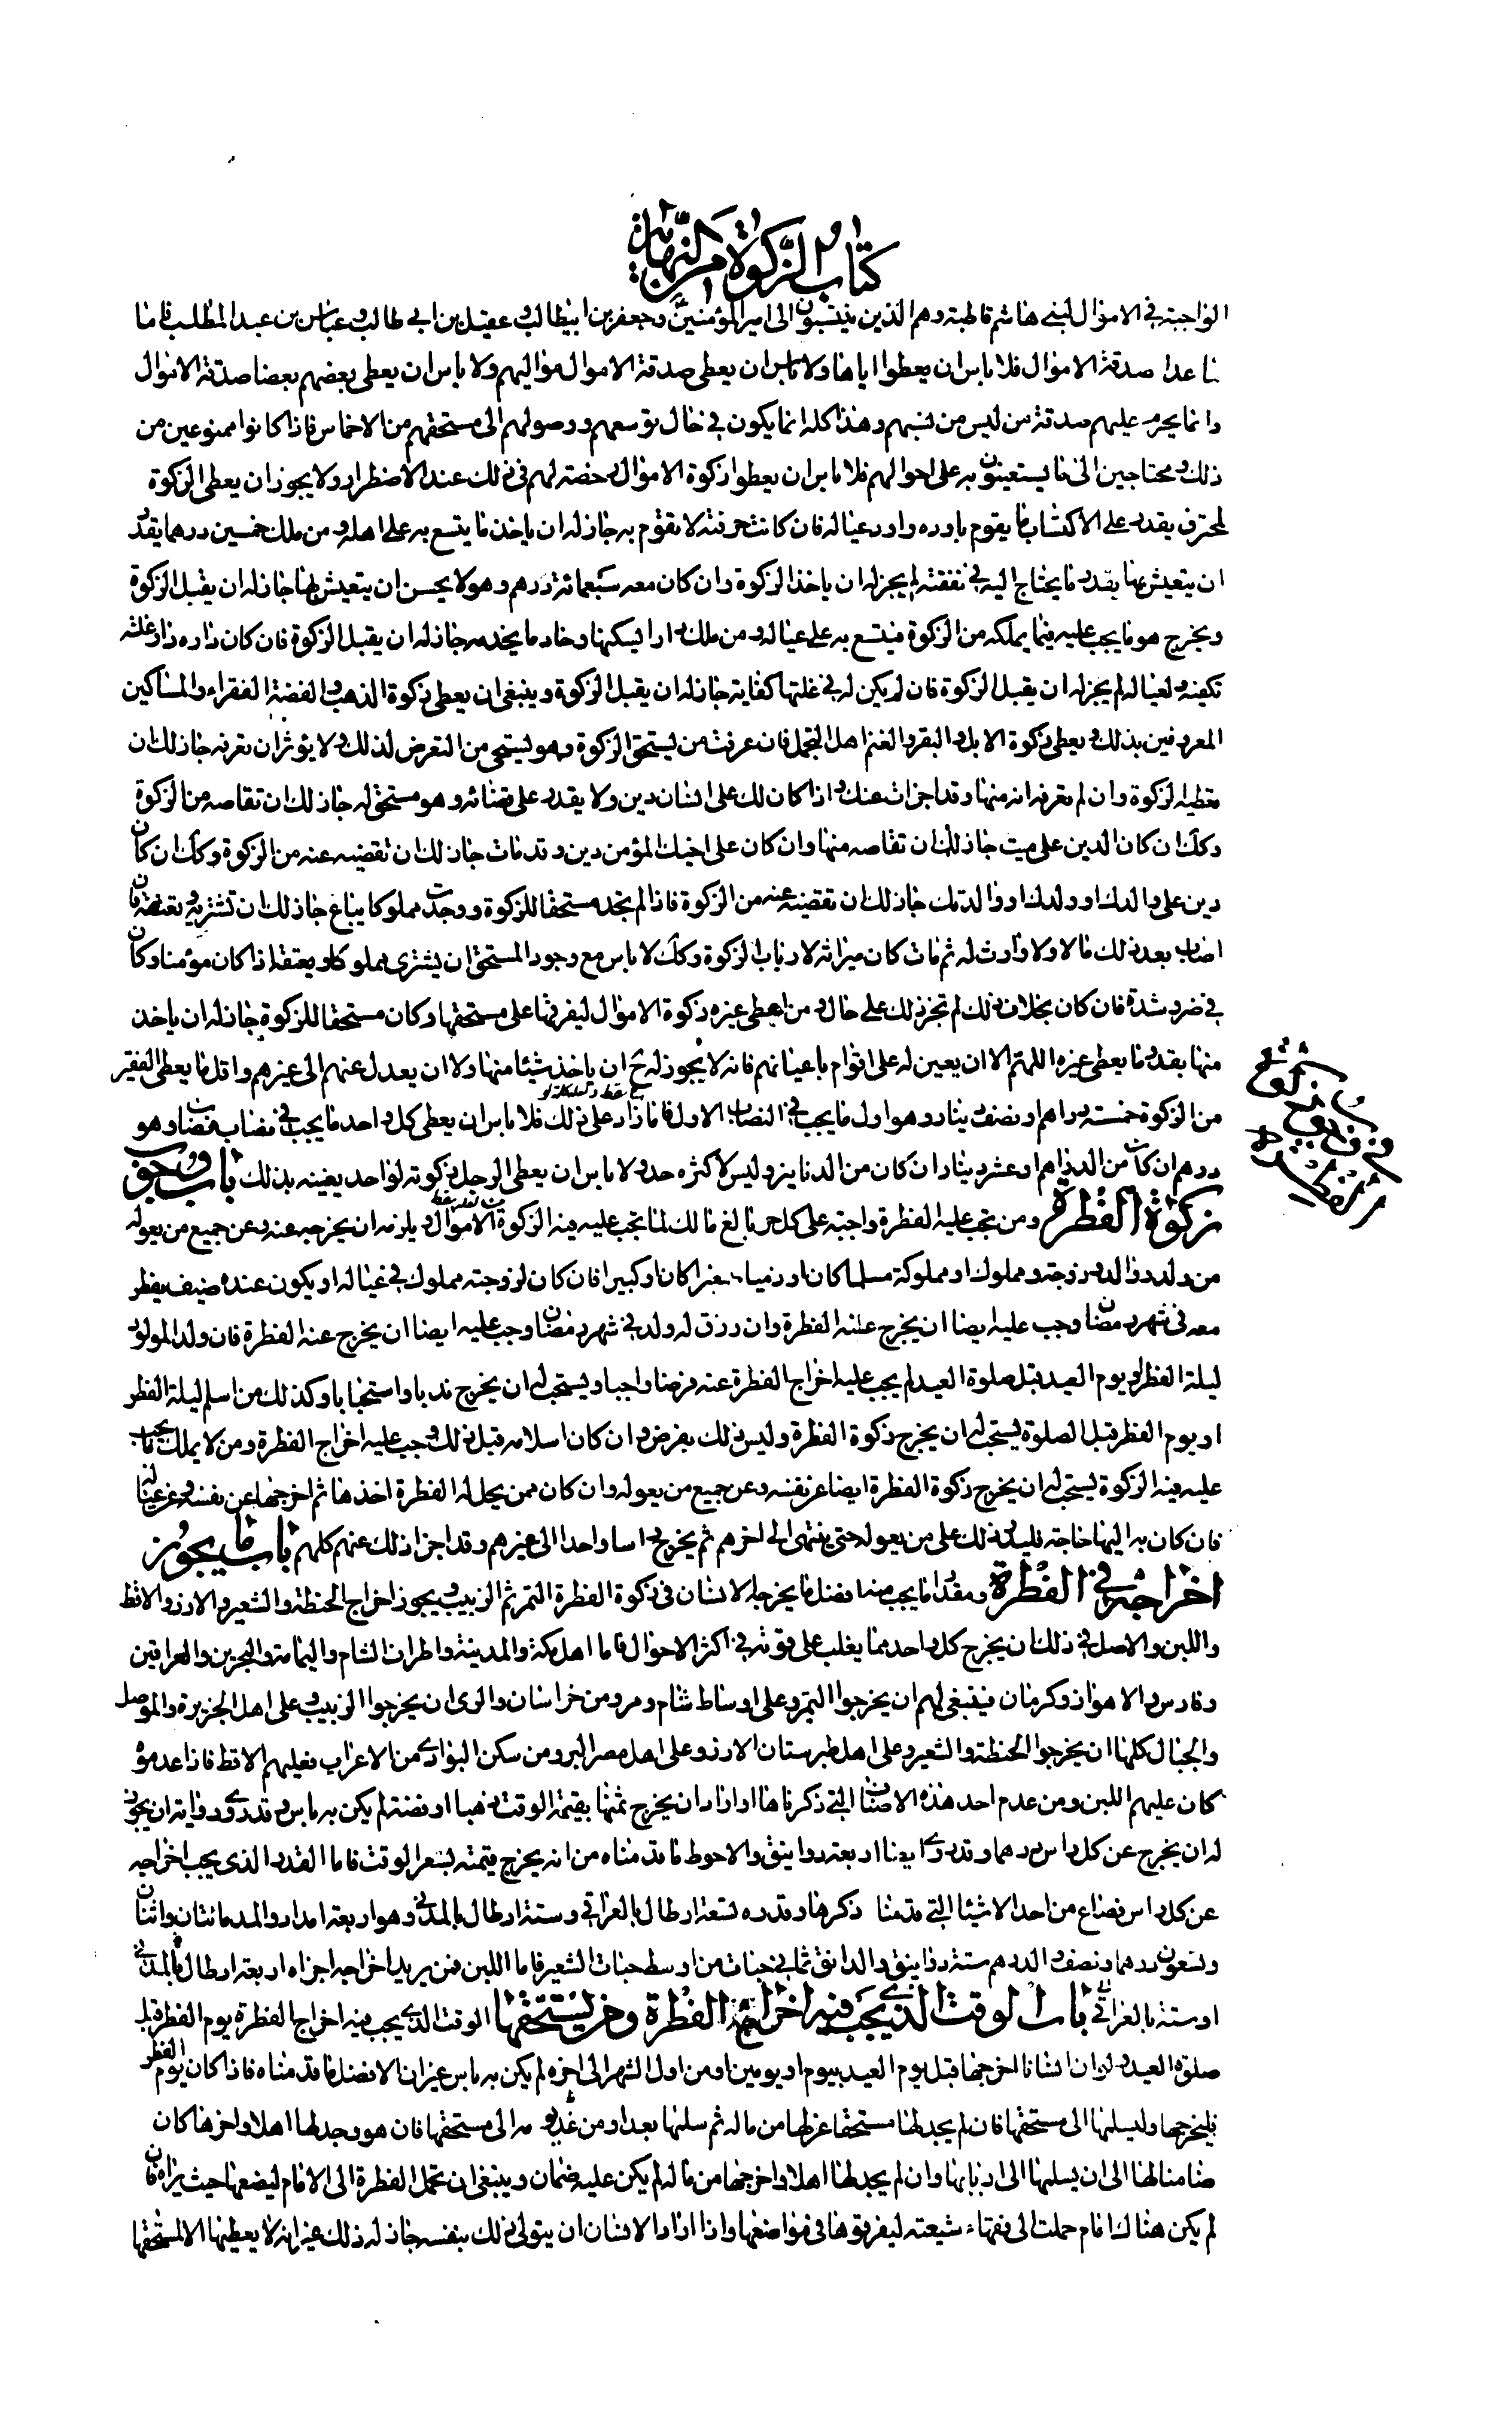 كتاب الزكوة من النهاية
الواجبة في الاموال لبني هاشم قاطبة وهم الذين ينتسبون الى امير المؤمنين وجعفر بن ابيطالب وعقيل بن ابي طالب وعباس بن عبد المطلب فاما
ما عدا صدقة الاموال فلا باس ان يعطوا اياها ولا باس ان يعطى صدقة الاموال مواليهم ولا باس ان يعطى بعضهم بعضا صدقة الاموال
وانما يحرم عليهم صدقة من ليس من نسبهم وهذا كله انما يكون في حال توسعهم ووصولهم الى مستحقهم من الاخماس فاذا كانوا ممنوعين من
ذلك ومحتاجين الى ما يستعينون به على احوالهم فلا باس ان يعطوا زكوة الاموال رخصة لهم في ذلك عند الاضطرار ولا يجوز ان يعطى الزكوة
لمحترف يقدر على الاكتساب ما يقوم باوده واود عياله فان كانت حرفته لا تقوم به جاز له ان ياخذ ما يتسع به على اهله ومن ملك خمسين درهما يقدر
ان يتعيش بها بقدر ما يحتاج اليه في نفقته لم يجز له ان ياخذ الزكوة وان كان معه سبعمائة درهم وهو لا يحسن ان يتعيش بها جاز له ان يقبل الزكوة
ويخرج هو ما يجب عليه فيما يملكه من الزكوة فيتسع به على عياله ومن ملك دارا يسكنها وخادما يخدمه جاز له ان يقبل الزكوة فان كان داره دار غلة
تكفيه ولعياله لم يجز له ان يقبل الزكوة فان لم يكن له في غلتها كفاية جاز له ان يقبل الزكوة وينبغي ان يعطى زكوة الذهب والفضة الفقراء والمساكين
المعروفين بذلك ويعطى زكوة الابل والبقر والغنم اهل التجمل فان عرفت من يستحق الزكوة وهو يستحي من التعرض لذلك ولا يؤثر ان تعرفه جاز لك ان
تعطيه الزكوة وان لم تعرفه انه منها وقد اجزات عنك واذا كان لك على انسان دين ولا يقدر على قضائه وهو مستحق له جاز لك ان تقاصه من الزكوة
وكك ان كان الدين على ميت جاز لك ان تقاصه منها وان كان على اخيك المؤمن دين وقد مات جاز لك ان تقضيه عنه من الزكوة وكك ان كان
دين على والدك او ولدك او والدتك جاز لك ان تقضيه عنه من الزكوة فاذا لم تجد مستحقا للزكوة ووجدت مملوكا يباع جاز لك ان تشتريه وتعتقه فان
اصاب بعد ذلك مالا ولا وارث له ثم مات كان ميراثه لارباب الزكوة وكك لا باس مع وجود المستحق ان يشترى مملوكا ويعتقه اذا كان مؤمنا وكان
في ضر وشدة فان كان بخلاف ذلك لم تجز ذلك على حال ومن اعطى غيره زكوة الاموال ليفرقها على مستحقها وكان مستحقا للزكوة جاز له ان ياخذ
منها بقدر ما يعطى غيره اللهم الا ان يعين له على اقوام باعيانهم فانه لا يجوز له ح ان ياخذ شيئا منها ولا ان يعدل عنهم الى غيرهم واقل ما يعطى الفقير
من الزكوة خمسة دراهم او نصف دينار وهو اول ما يجب في النصاب الاول فاما ما زاد على ذلك فلا باس ان يعطى كل واحد ما يجب في نصاب نصاب وهو
درهم ان كان من الدراهم او عشر دينار ان كان من الدنانير وليس لاكثره حد ولا باس ان يعطى الرجل زكوته لواحد يغنيه بذلك باب وجوب
زكوة الفطرة ومن تجب عليه الفطرة واجبة على كل حر بالغ مالك لما تجب عليه فيه الزكوة الاموال ويلزمه ان يخرجه عنه وعن جميع من يعوله
من ولد ووالد وزوجة ومملوك او مملوكة مسلما كان او ذميا صغيرا كان او كبيرا فان كان لزوجته مملوك في عياله او يكون عنده ضيف يفطر
معه في شهر رمضان وجب عليه ايضا ان يخرج عنه الفطرة وان رزق له ولد في شهر رمضان وجب عليه ايضا ان يخرج عنه الفطرة فان ولد المولود
ليلة الفطر او يوم العيد قبل صلوة العيد لم يجب عليه اخراج الفطرة عنه فرضا واجبا ويستحب له ان يخرج ندبا واستحبابا وكذلك من اسلم ليلة الفطر
او يوم الفطر قبل الصلوة يستحب له ان يخرج زكوة الفطرة وليس ذلك بفرض وان كان اسلامه قبل ذلك وجب عليه اخراج الفطرة ومن لا يملك ما يجب
عليه فيه الزكوة يستحب له ان يخرج زكوة الفطرة ايضا عن نفسه وعن جميع من يعوله وان كان ممن يحل له الفطرة اخذها ثم اخرجها عن نفسه وعن عياله
فان كان به اليها حاجة فليدر ذلك على من يعوله حتى ينتهى الى اخرهم ثم يخرج راسا واحدا الى غيرهم وقد اجزا ذلك عنهم كلهم باب ما يجوز
اخراجه في الفطرة ومقدار ما يجب منه افضل ما يخرجه الانسان في زكوة الفطرة التمر ثم الزبيب ويجوز اخراج الحنطة والشعير والارز والاقط
واللبن والاصل في ذلك ان يخرج كل واحد مما يغلب على قوته في اكثر الاحوال فاما اهل مكة والمدينة واطراف الشام واليمامة والبحرين والعراقين
وفارس والاهواز وكرمان فينبغي لهم ان يخرجوا التمر وعلى اوساط شام ومرو من خراسان والرى ان يخرجوا الزبيب وعلى اهل الجزيرة والموصل
والجبال كلها ان يخرجوا الحنطة والشعير وعلى اهل طبرستان الارز وعلى اهل مصر البر ومن سكن البوادي من الاعراب فعليهم الاقط فاذا عدموه
كان عليهم اللبن ومن عدم احد هذه الاصناف التي ذكرناها او اراد ان يخرج ثمنها بقيمة الوقت ذهبا او فضة لم يكن به باس وقد روى رواية ان يجوز
له ان يخرج عن كل راس درهما وقد روى ايضا اربعة دوانيق والاحوط ما قدمناه من انه يخرج قيمته بسعر الوقت فاما القدر الذي يجب اخراجه
عن كل راس فصاع من احد الاشياء التي قدمنا ذكرها وقدره تسعة ارطال بالعراقي وستة ارطال بالمدني وهو اربعة امداد والمد مائتان واثنان
وتسعون درهما ونصف والدرهم ستة دوانيق والدانق ثماني حبات من اوسط حبات الشعير فاما اللبن فمن يريد اخراجه اجزاه اربعة ارطال بالمدني
او ستة بالعراقي باب الوقت الذي يجب فيه اخراج الفطرة ومن يستحقها الوقت الذي يجب فيه اخراج الفطرة يوم الفطر قبل
صلوة العيد ولو ان انسانا اخرجها قبل يوم العيد بيوم او يومين او من اول الشهر الى اخره لم يكن به باس غير ان الافضل ما قدمناه فاذا كان يوم الفطر
فليخرجها وليسلمها الى مستحقها فان لم يجد لها مستحقا عزلها من ماله ثم سلمها بعد او من غد يومه الى مستحقها فان هو وجد لها اهلا واخرها كان
ضامنا لها الى ان يسلمها الى اربابها وان لم يجد لها اهلا واخرجها من ماله لم يكن عليه ضمان وينبغي ان تحمل الفطرة الى الامام ليضعها حيث يراه فان
لم يكن هناك امام حملت الى فقهاء شيعته ليفرقوها في مواضعها واذا اراد الانسان ان يتولى ذلك بنفسه جاز له ذلك غير انه لا يعطيها الا لمستحقها